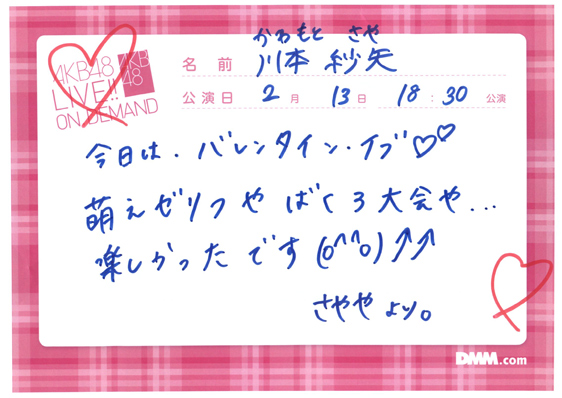 AKB48
LIVE!!
ON DEMAND
AKB
48
かわもと さや
名前 川本 紗矢
公演日 2月 13日 18:30 公演
今日は、バレンタイン・イブ♡♡
萌えゼリフや ばくろ大会や...
楽しかったです(o^^o)↑↑
さややより。
DMM.com